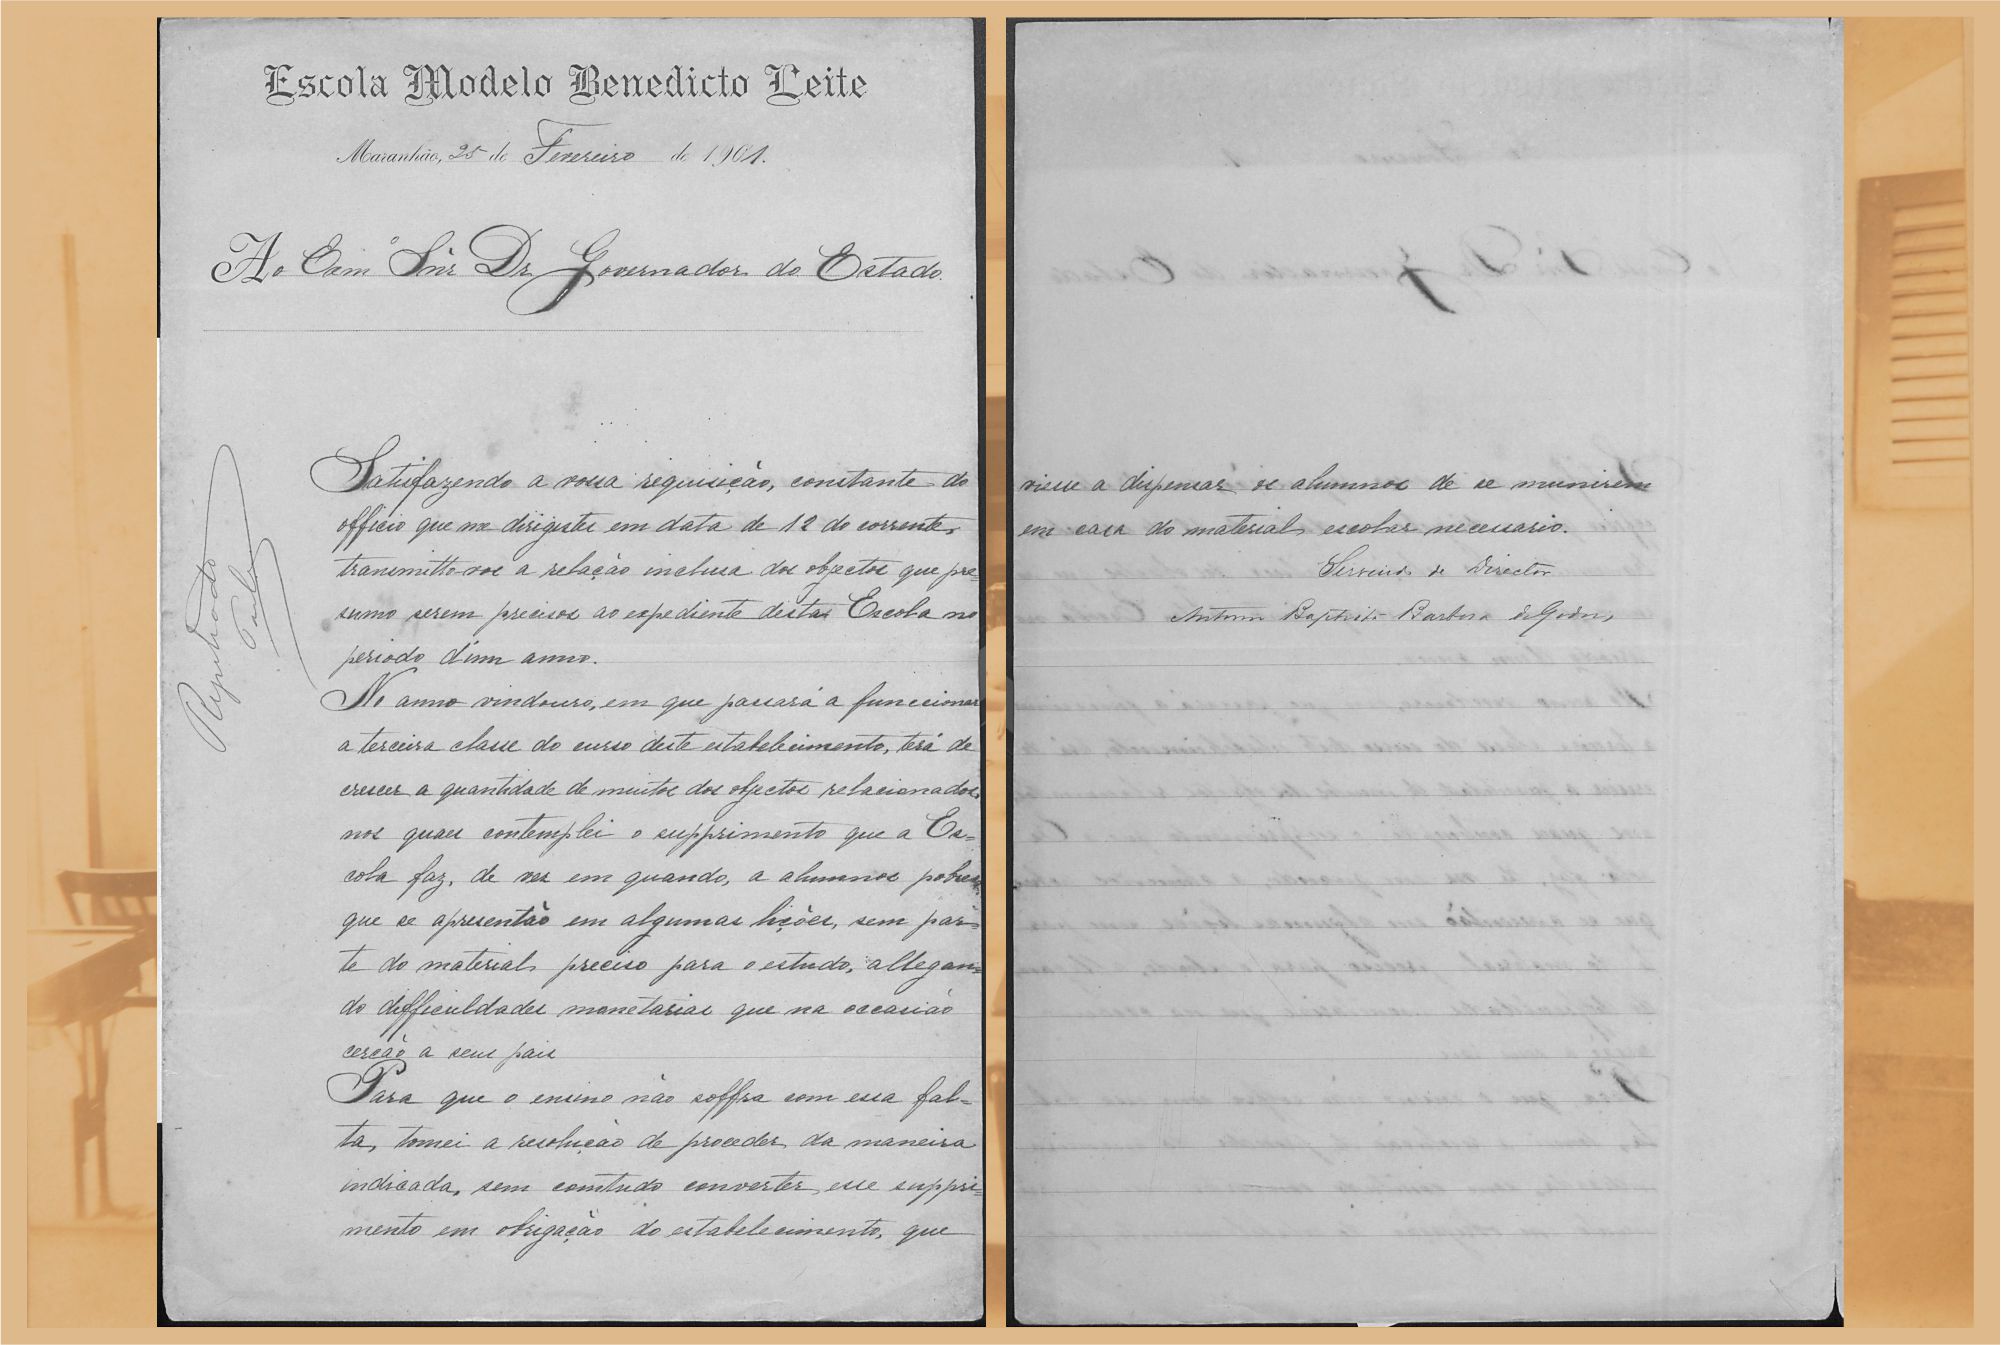 Escola Modelo Benedicto Leite
Maranhão, 25 de Fevereiro de 1901.
Ao Exmº Snr. Dr. Governador do Estado.
Satisfazendo a vossa requisição, constante do
officio que me dirigistes em data de 12 do corrente,
transmitto-vos a relação inclusa dos objectos que pre-
sumo serem precisos ao expediente desta Escola no
periodo d'um anno.
No anno vindouro, em que passará a funccionar
a terceira classe do curso deste estabelecimento, terá de
crescer a quantidade de muitos dos objectos relacionados,
nos quaes contemplei o supprimento que a Es-
cola faz, de vez em quando, a alumnos pobres,
que se apresentão em algumas lições, sem par-
te do material preciso para o estudo, allegan-
do difficuldades monetarias que na occasião
cercão a seus pais
Para que o ensino não soffra com essa fal-
ta, tomei a resolução de proceder da maneira
indicada, sem comtudo converter esse suppri-
mento em obrigação do estabelecimento, que
viesse a dispensar os alumnos de se munirem
em casa do material escolar necessario.
Servindo de Director
Antonio Baptista Barbosa de Godois